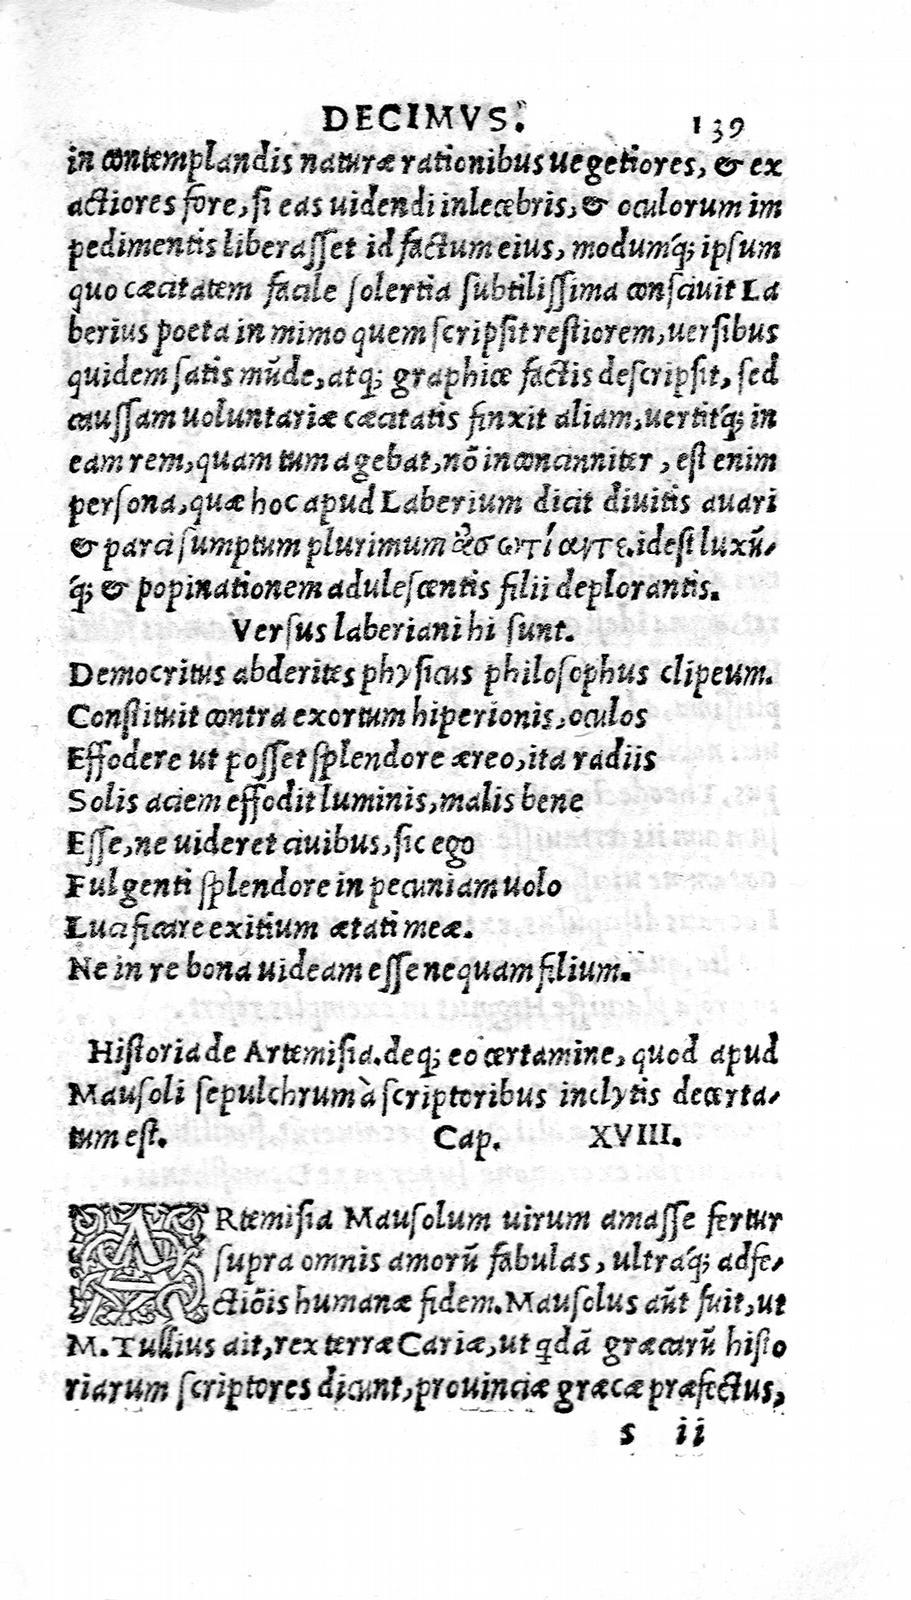 DECIMVS. 139
in contemplandis naturæ rationibus uegetiores, & ex
actiores fore, si eas uidendi inlecebris, & oculorum im
pedimentis liberasset id factum eius, modumq́; ipsum
quo cæcitatem facile solertia subtilissima consciuit La
berius poeta in mimo quem scripsit restiorem, uersibus
quidem satis mūde, atq; graphice factis descripsit, sed
caussam uoluntariæ cæcitatis finxit aliam, uertitq́; in
eam rem, quam tum agebat, nō inconcinniter, est enim
persona, quæ hoc apud Laberium dicit diuitis auari
& parci sumptum plurimum idest luxū,
q́; & popinationem adulescentis filii deplorantis.
Versus laberiani hi sunt.
Democritus abderites physicus philosophus clipeum.
Constituit contra exortum hiperionis, oculos
Effodere ut posset splendore æreo, ita radiis
Solis aciem effodit luminis, malis bene
Esse, ne uideret ciuibus, sic ego
Fulgenti splendore in pecuniam uolo
Lucificare exitium ætati meæ.
Ne in re bona uideam esse nequam filium.
Historia de Artemisia. deq; eo certamine, quod apud
Mausoli sepulchrum à scriptoribus inclytis decerta,
tum est. Cap. XVIII.
ARtemisia Mausolum uirum amasse fertur
supra omnis amorū fabulas, ultraq́; adfe,
ctiōis humanæ fidem. Mausolus aūt fuit, ut
M. Tullius ait, rex terræ Cariæ, ut qdā græcarū histo
riarum scriptores dicunt, prouinciæ græcæ præfectus,
s ii